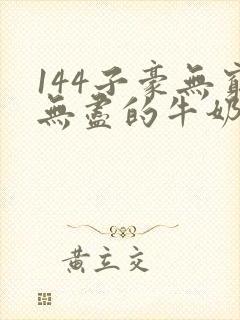 144子豪無窮
無盡的牛奶
黃立交